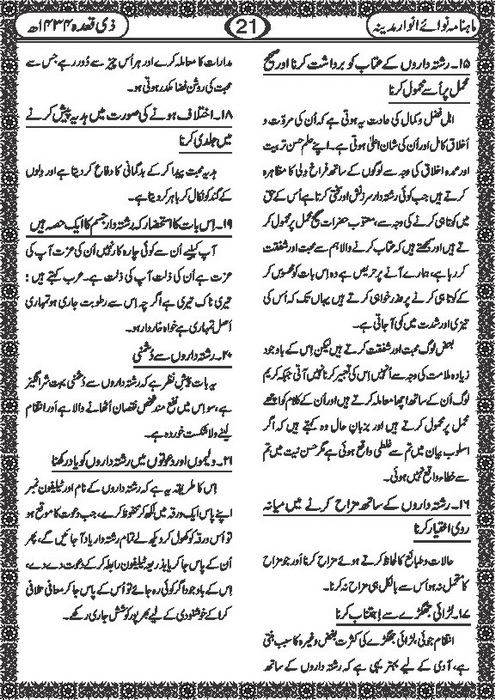 ماہنامہ نوائے انوارِ مدینہ
21
ذی قعدہ ۱۴۳۴ھ
۱۵۔ رشتہ داروں کے عتاب کو برداشت کرنا اور صحیح
محمل پر اُسے محمول کرنا
اہلِ فضل و کمال کی عادت یہ ہوتی ہے کہ اُن کی مروّت و
اَخلاق کامل اور اُن کی شان اعلیٰ ہوتی ہے۔ اپنے حلم حسن تربیت
اور عمدہ اخلاق کی وجہ سے لوگوں کے ساتھ فراخ دِلی کا مظاہرہ
کرتے ہیں جب کوئی رشتہ دار سرزنش اور سختی کرتا ہے اُس کے حق
میں کوتاہی کرنے کی وجہ سے، معتوب حضرات صحیح محمل پر محمول کر
تے ہیں اور سمجھتے ہیں کہ عتاب کرنے والا ہم سے محبت اور شفقت
کر رہا ہے، ہمارے آنے پر حریص ہے وہ اِس بات کو محسوس کر
کے کوتاہی کرنے پر عذر خواہی کرتے ہیں یہاں تک کہ اُس کی
تیزی اور شدت میں کمی آجاتی ہے۔
بعض لوگ محبت اور شفقت کرتے ہیں لیکن اِس کے باوجود
زیادہ ملامت کی وجہ سے اُنہیں اِس کی تعبیر کرنا نہیں آتی جبکہ کریم
لوگ اُن کے ساتھ اچھا معاملہ کرتے ہیں اور اُن کے کلام کو اچھے
محمل پر محمول کرتے ہیں اور بزبانِ حال وہ کہتے ہیں کہ اگر
اسلوبِ بیان میں تم سے غلطی واقع ہوئی ہے مگر حسنِ نیت میں تم
سے خطا واقع نہیں ہوئی۔
۱۶۔ رشتہ داروں کے ساتھ مزاح کرنے میں میانہ
روی اختیار کرنا
حالات و طبائع کا لحاظ کرتے ہوئے مزاح کرنا اور جو مزاح
کا متحمل نہ ہو اُس سے بالکل ہی مزاح نہ کرنا۔
۱۷۔ لڑائی جھگڑے سے اِجتناب کرنا
انتقام جوئی، لڑائی جھگڑے کی کثرت بغض وغیرہ کا سبب بنتی
ہے، آدمی کے لیے بہتر یہی ہے کہ رشتہ داروں کے ساتھ
مدارات کا معاملہ کرے اور ہر اُس چیز سے دُور رہے جس سے
محبت کی روشن فضا مکدر ہوتی ہو۔
۱۸۔ اختلاف ہونے کی صورت میں ہدیہ پیش کرنے
میں جلدی کرنا
ہدیہ محبت پیدا کر کے بدگمانی کا دفاع کر دیتا ہے اور دِلوں
کے گند کو نکال کر باہر کر دیتا ہے۔
۱۹۔ اِس بات کا استحضار کہ رشتہ دار جسم کا ایک حصہ ہیں
آپ کیلیے اُن سے کوئی چارہ کار نہیں اُن کی عزت آپ کی
عزت ہے اُن کی ذلت آپ کی ذلت ہے۔ عرب کہتے ہیں :
تیری ناک تیری ہے اگر چہ اِس سے رطوبت جاری ہو تمہاری
اَصل تمہاری ہے خواہ خاردار ہو۔
۲۰۔ رشتہ داروں سے دُشمنی
یہ بات پیشِ نظر رہے کہ رشتہ داروں سے دُشمنی بہت شرانگیز
ہے، سو اِس میں نفع مند شخص نقصان اُٹھانے والا ہے اور انتقام
لینے والا شکست خوردہ ہے۔
۲۱۔ ولیموں اور دعوتوں میں رشتہ داروں کو یاد رکھنا
اِس کا طریقہ یہ ہے کہ رشتہ داروں کے نام اور ٹیلیفون نمبر
اپنے پاس ایک ورقہ میں لکھ کر محفوظ کرے، جب دعوت کا موقع ہو
تو اُس ورقہ کو کھول کر دیکھ لے تمام رشتہ دار یاد آجائیں گے، پھر
اُن کے پاس جا کر یا بذریعہ ٹیلیفون رابطہ کر کے دعوت دے دے،
اِس کے باوجود اگر کوئی رہ جائے تو اُس کے پاس جا کر معافی تلافی
کرا کے خوشنودی کے لیے بھرپور کوشش جاری رکھے۔